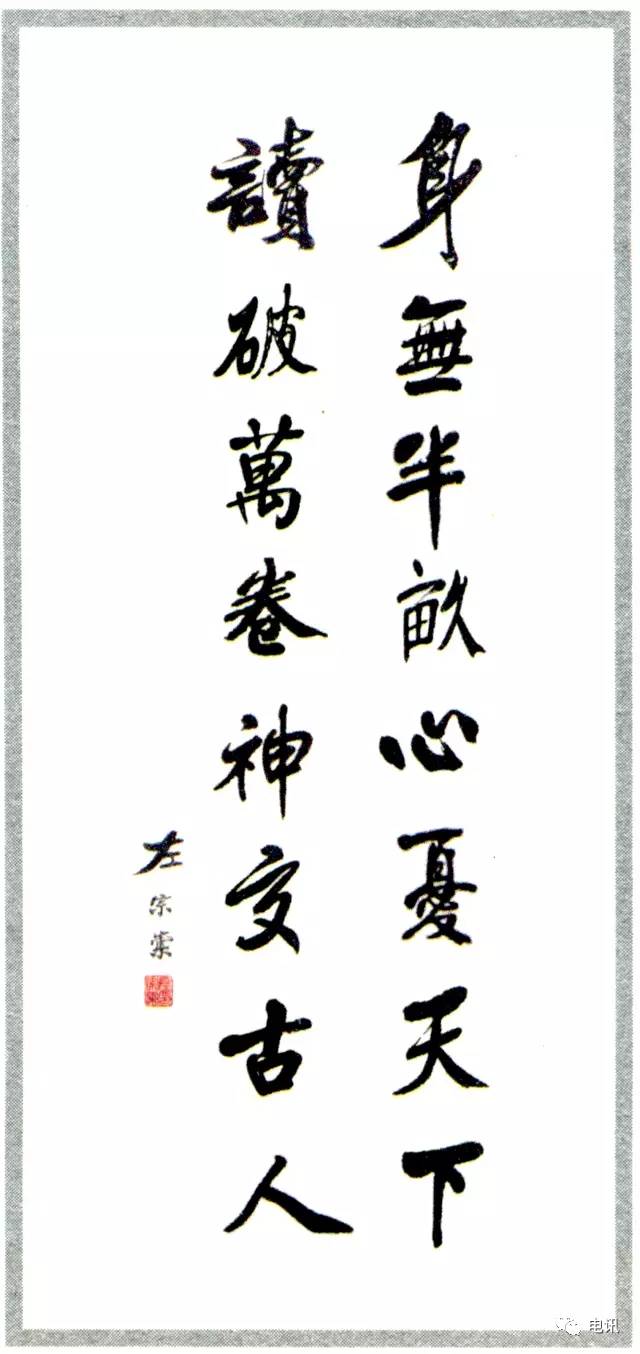 身無半畝心憂天下
讀破萬卷神交古人
左宗棠
电讯